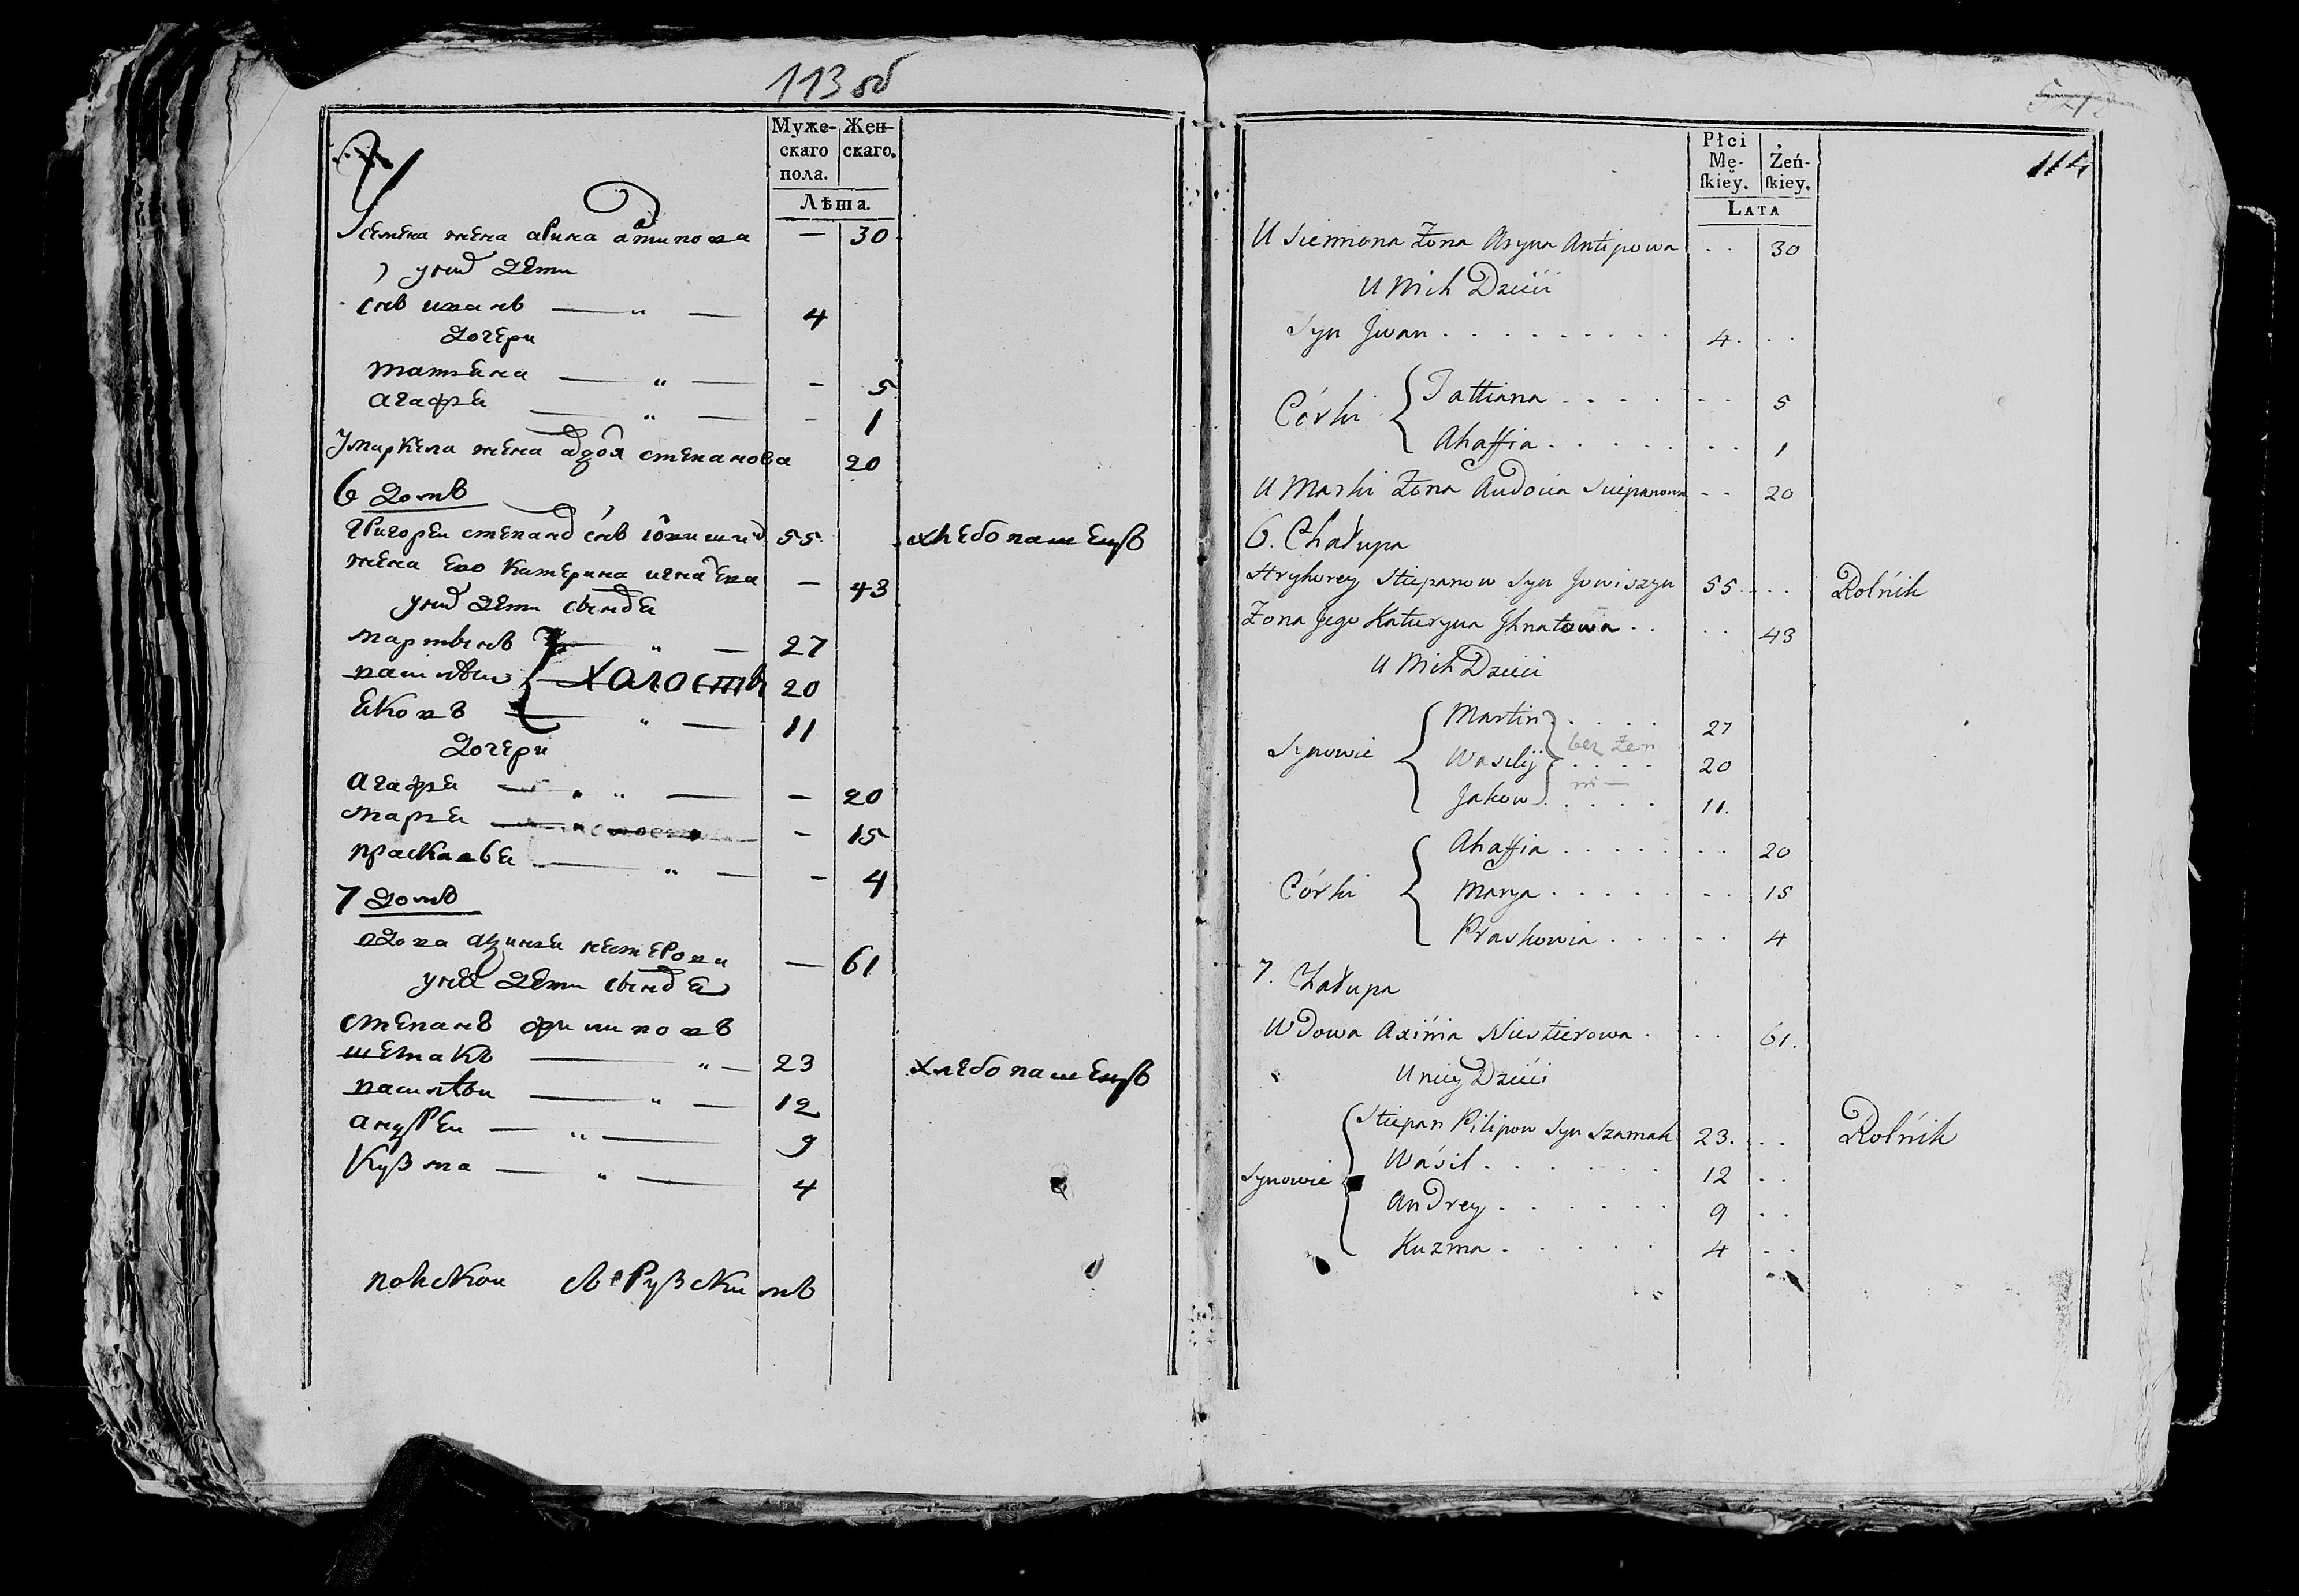 113 об
Муже-
скаго
пола.
Жен-
скаго.
Лѣта.
Усемена жена арина антипова — 30
у нихъ дети
снъ иванъ — „ — 4
дочери
татьяна — „ — - 5
агафья — „ — - 1
Умаркела жена авдотя степанова 20
6 домъ
григореи степановъ снъ 55 хлебопашецъ
жена его катерина игнатева — 43
унихъ дети сыновья
мартынъ — „ — 27
василѣи холосты 20
яковъ — „ — 11
дочери
агафья — „ — — 20
марья — - 15
прасковья — „ — - 4
7 домъ
вдова аксинья нестерова — 61
унее дети сыновья
степанъ филиповъ
шемакъ — „ — 23 хлебопашецъ
василѣи — „ — 12
андреи — „ — 9
кузма — „ — 4
польскои съ рускимъ
114
Płci
Mę-
skiey.
Żeń-
skiey.
LATA
U Siemiona Żona Aryna Antipowa . . 30
U Nich Dzieci
Syn Jwan . . . . . . . . . 4. . .
Córki { Tattiana . . . . . . . 5
Ahaffia . . . . . . . 1
U Marki Żona Audocia Sciepanowa - - 20
6. Chałupa
Hryhorey Stiepanow Syn Jowiszyn 55. . . Rolńik
Żona Jego Kateryna Jhnatowa . . . . 43
U Nich Dzieci
Synowie { Martin } . . . . 27
Wasilij } bez żen . . . . 20
Jakow } . . . . . 11.
Córki { Ahaffia . . . . . . . 20
Marya . . . . . . . 15
Praskowia . . . . - - 4
7. Hałupa
Wdowa Axińia Niestierowa . . . 61.
U niey Dzieci
Synowie { Stiepan Pilipow Syn Szamak 23. . . Rolńik
Waśil . . . . . . 12 . .
Andrey . . . . . . 9 . .
Kuzma . . . . . 4 . .